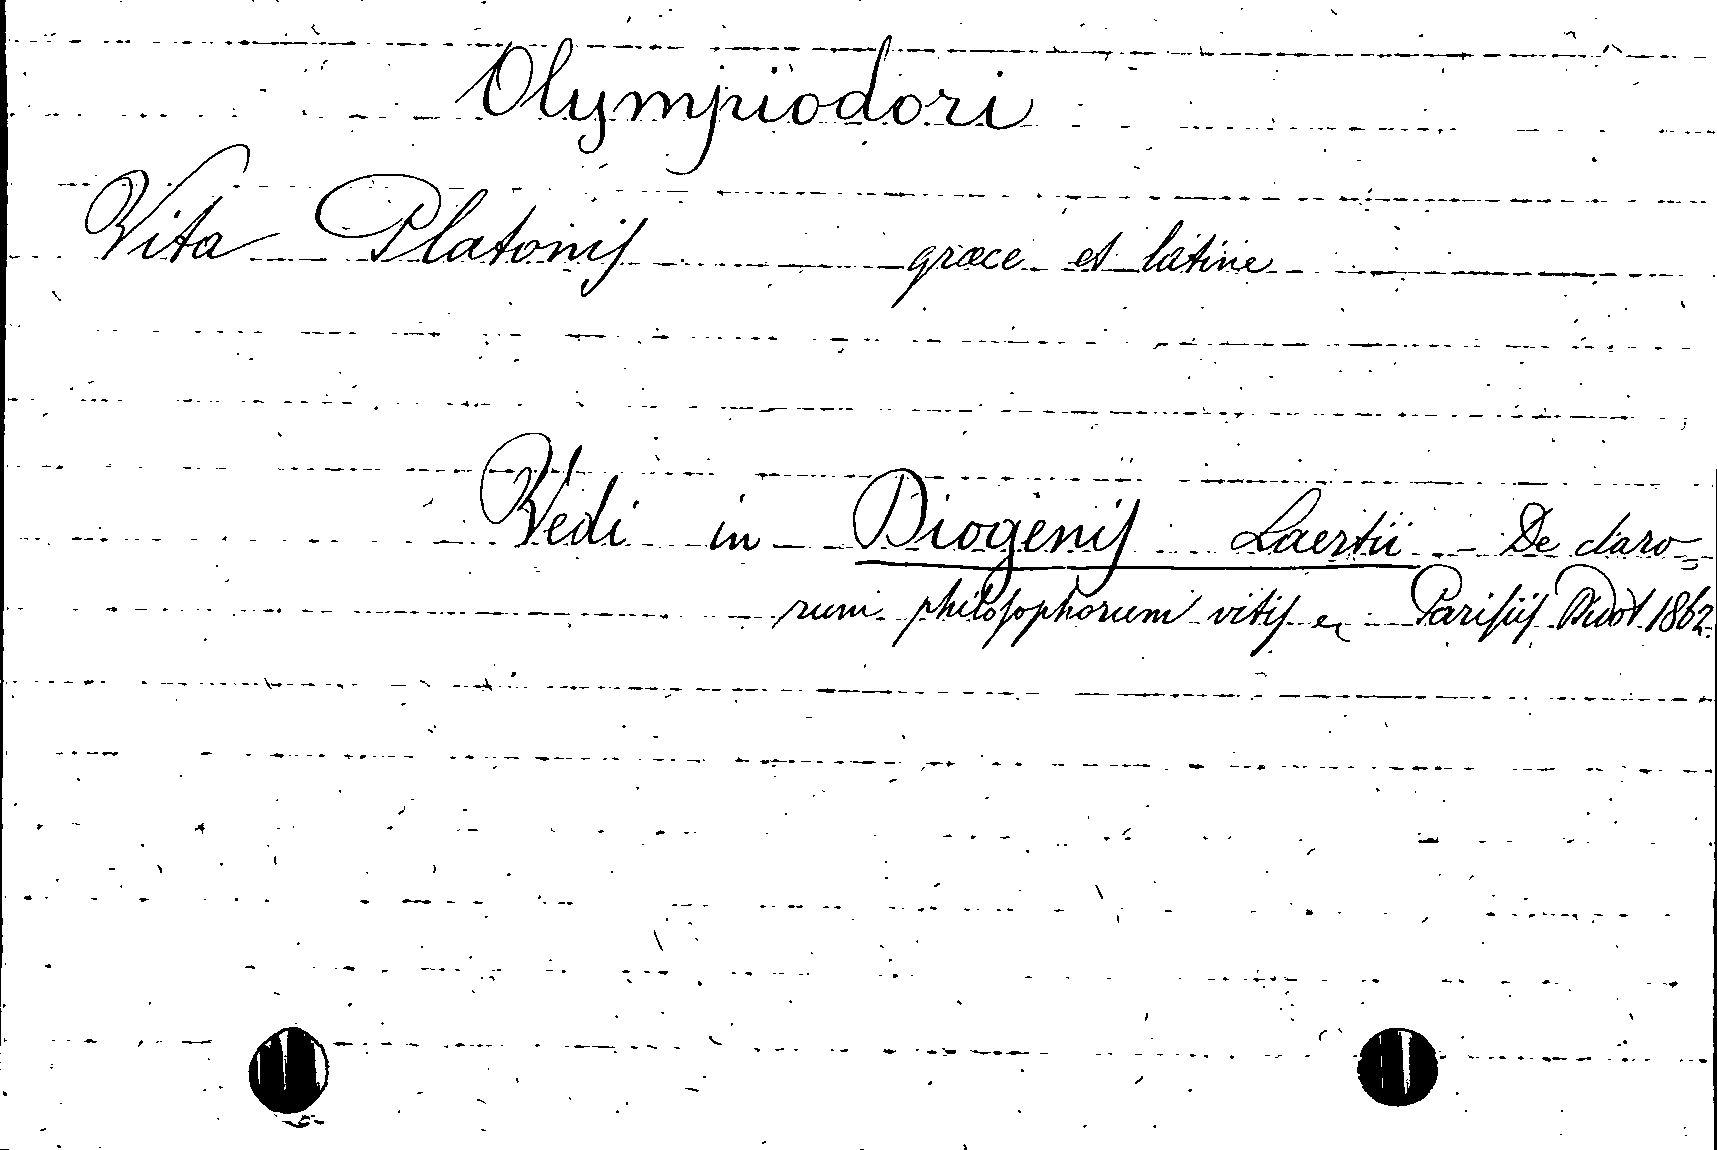 Olympiodori
Vita Platonis graece et latine
Vedi in Diogenis Laertii De claro=
rum philosophorum vitis & Parisiis Didot 1862.